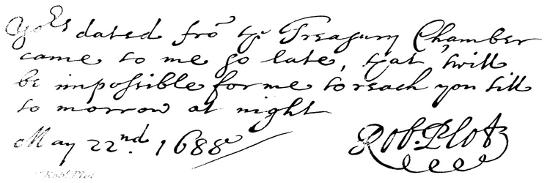 Yo^rs dated fro^̄ y^e Treasury Chamber
came to me so late, y^t at, twill
be impossible for me to reach you till
to morrow at night
May 22^nd. 1688
Rob. Plot
Rob^t Plot